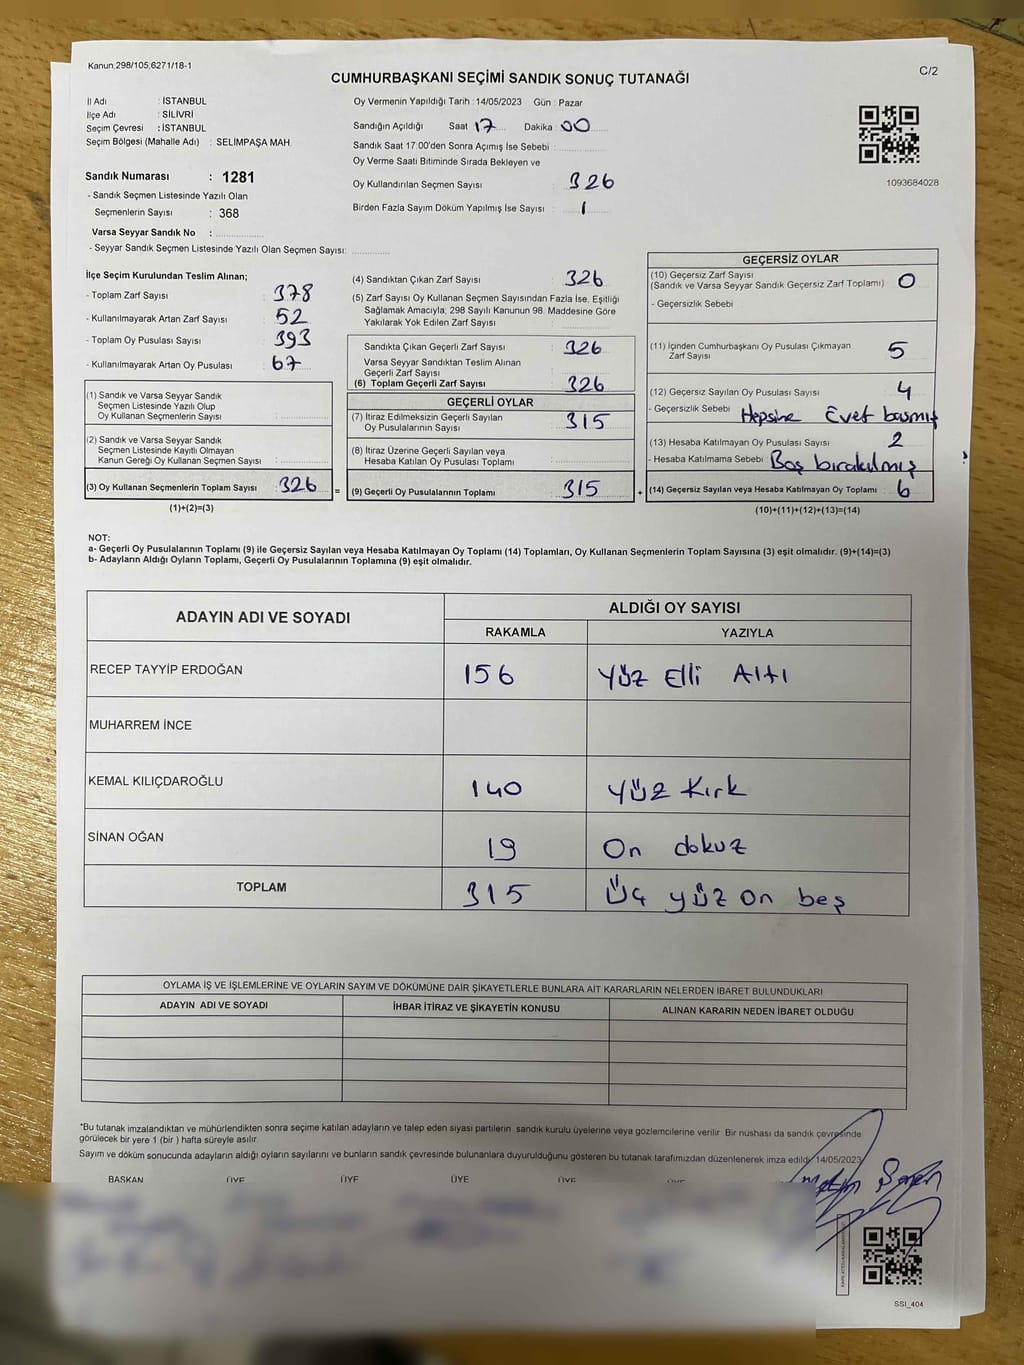 Kanun,298/105,6271/18-1
CUMHURBAŞKANI SEÇİMİ SANDIK SONUÇ TUTANAĞI
C/2
İl Adı : İSTANBUL
İlçe Adı : SİLİVRİ
Seçim Çevresi : İSTANBUL
Seçim Bölgesi (Mahalle Adı) : SELİMPAŞA MAH.
Sandık Numarası : 1281
- Sandık Seçmen Listesinde Yazılı Olan
Seçmenlerin Sayısı : 368
Varsa Seyyar Sandık No :
- Seyyar Sandık Seçmen Listesinde Yazılı Olan Seçmen Sayısı:
Oy Vermenin Yapıldığı Tarih : 14/05/2023 Gün : Pazar
Sandığın Açıldığı Saat 17 Dakika 00
Sandık Saat 17:00'den Sonra Açımış İse Sebebi :
Oy Verme Saati Bitiminde Sırada Bekleyen ve
Oy Kullandırılan Seçmen Sayısı : 326
Birden Fazla Sayım Döküm Yapılmış İse Sayısı : 1
1093684028
İlçe Seçim Kurulundan Teslim Alınan;
- Toplam Zarf Sayısı : 378
- Kullanılmayarak Artan Zarf Sayısı : 52
- Toplam Oy Pusulası Sayısı : 393
- Kullanılmayarak Artan Oy Pusulası : 67
(1) Sandık ve Varsa Seyyar Sandık
Seçmen Listesinde Yazılı Olup
Oy Kullanan Seçmenlerin Sayısı :
(2) Sandık ve Varsa Seyyar Sandık
Seçmen Listesinde Kayıtlı Olmayan
Kanun Gereği Oy Kullanan Seçmen Sayısı :
(3) Oy Kullanan Seçmenlerin Toplam Sayısı : 326
(1)+(2)=(3)
=
(4) Sandıktan Çıkan Zarf Sayısı : 326
(5) Zarf Sayısı Oy Kullanan Seçmen Sayısından Fazla İse, Eşitliği
Sağlamak Amacıyla, 298 Sayılı Kanunun 98. Maddesine Göre
Yakılarak Yok Edilen Zarf Sayısı :
Sandıkta Çıkan Geçerli Zarf Sayısı : 326
Varsa Seyyar Sandıktan Teslim Alınan
Geçerli Zarf Sayısı :
(6) Toplam Geçerli Zarf Sayısı : 326
GEÇERLİ OYLAR
(7) İtiraz Edilmeksizin Geçerli Sayılan
Oy Pusulalarının Sayısı : 315
(8) İtiraz Üzerine Geçerli Sayılan veya
Hesaba Katılan Oy Pusulası Toplamı :
(9) Geçerli Oy Pusulalarının Toplamı : 315
+
GEÇERSİZ OYLAR
(10) Geçersiz Zarf Sayısı
(Sandık ve Varsa Seyyar Sandık Geçersiz Zarf Toplamı) : 0
- Geçersizlik Sebebi
(11) İçinden Cumhurbaşkanı Oy Pusulası Çıkmayan
Zarf Sayısı : 5
(12) Geçersiz Sayılan Oy Pusulası Sayısı : 4
- Geçersizlik Sebebi : Hepsine Evet basmış
(13) Hesaba Katılmayan Oy Pusulası Sayısı : 2
- Hesaba Katılmama Sebebi : Boş bırakılmış
(14) Geçersiz Sayılan veya Hesaba Katılmayan Oy Toplamı : 6
(10)+(11)+(12)+(13)=(14)
NOT:
a- Geçerli Oy Pusulalarının Toplamı (9) ile Geçersiz Sayılan veya Hesaba Katılmayan Oy Toplamı (14) Toplamları, Oy Kullanan Seçmenlerin Toplam Sayısına (3) eşit olmalıdır. (9)+(14)=(3)
b- Adayların Aldığı Oyların Toplamı, Geçerli Oy Pusulalarının Toplamına (9) eşit olmalıdır.
ADAYIN ADI VE SOYADI
ALDIĞI OY SAYISI
RAKAMLA YAZIYLA
RECEP TAYYİP ERDOĞAN 156 Yüz Elli Altı
MUHARREM İNCE
KEMAL KILIÇDAROĞLU 140 Yüz Kırk
SİNAN OĞAN 19 On dokuz
TOPLAM 315 Üç yüz on beş
OYLAMA İŞ VE İŞLEMLERİNE VE OYLARIN SAYIM VE DÖKÜMÜNE DAİR ŞİKAYETLERLE BUNLARA AİT KARARLARIN NELERDEN İBARET BULUNDUKLARI
ADAYIN ADI VE SOYADI İHBAR İTİRAZ VE ŞİKAYETİN KONUSU ALINAN KARARIN NEDEN İBARET OLDUĞU
*Bu tutanak imzalandıktan ve mühürlendikten sonra seçime katılan adayların ve talep eden siyasi partilerin sandık kurulu üyelerine veya gözlemcilerine verilir. Bir nüshası da sandık çevresinde
görülecek bir yere 1 (bir ) hafta süreyle asılır.
Sayım ve döküm sonucunda adayların aldığı oyların sayılarını ve bunların sandık çevresinde bulunanlara duyurulduğunu gösteren bu tutanak tarafımızdan düzenlenerek imza edildi. 14/05/2023
BAŞKAN ÜYE ÜYE ÜYE ÜYE ÜYE
SSI_404